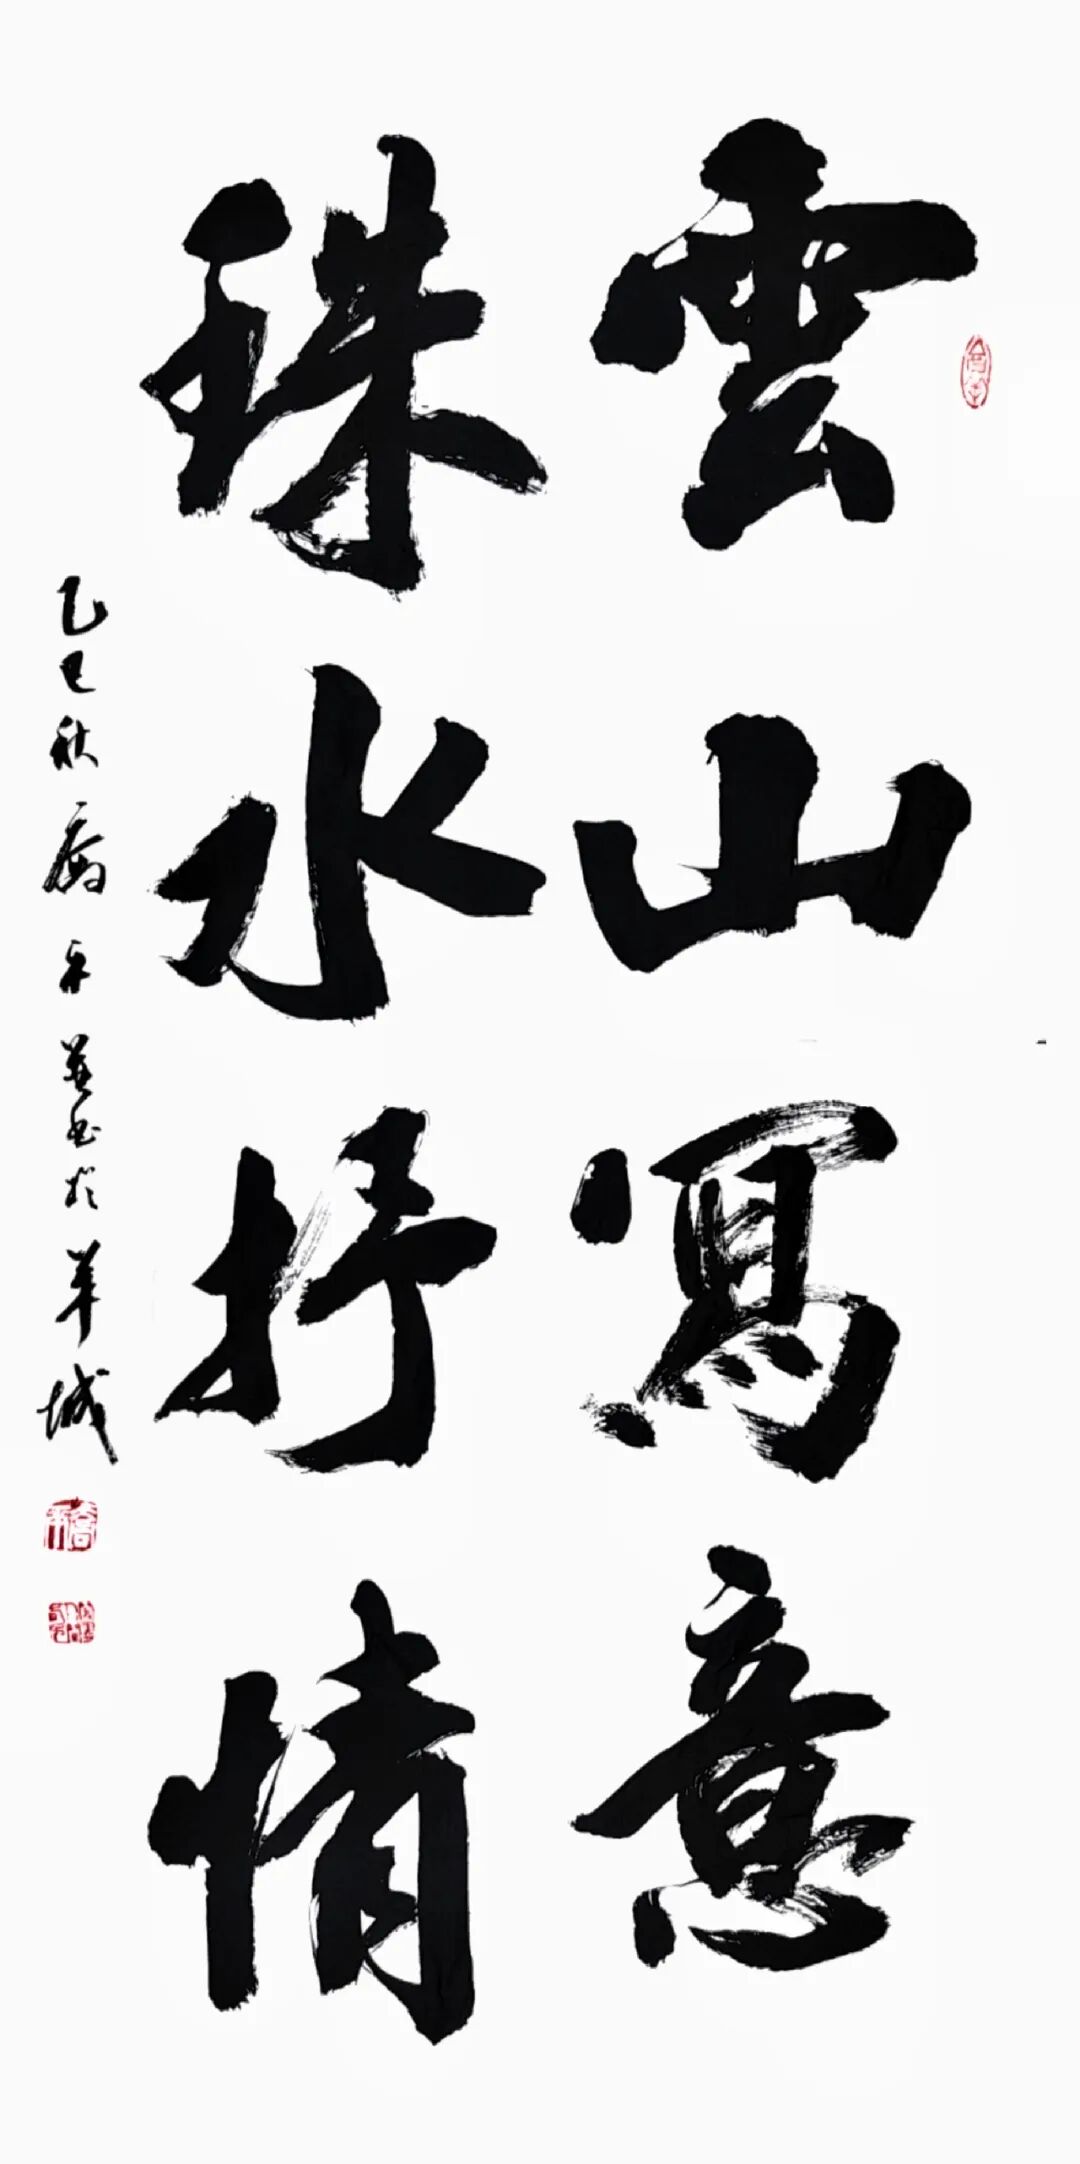 雲山寫意
珠水抒情
乙巳秋喬平並書於羊城